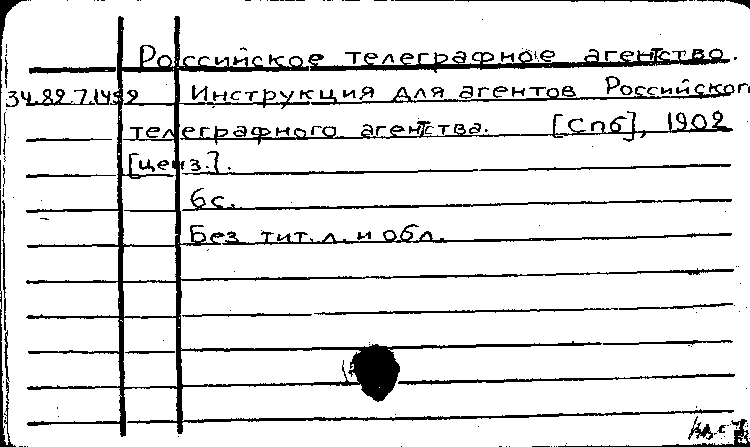 Российское телеграфное агентство.
34.89.7.1459 Инструкция для агентов Российског
телеграфного агентства. [Спб], 1902
[ценз.].
6с.
Без тит. л. и обл.